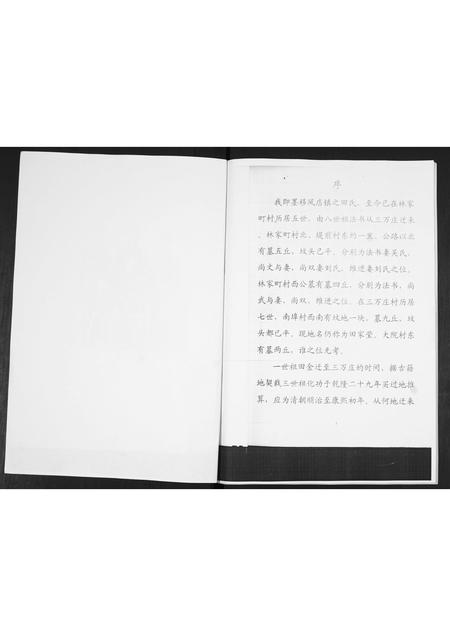 序
我即墨移风店镇之田氏，至今已在林家
町村历居五世，由八世祖法书从三万庄迁来
，林家町村北，堤前村东约一里，公路以北
有墓五丘，坟头已平，分别为法书妻吴氏，
尚文与妻，尚双妻刘氏，维进妻刘氏之位。
林家町村西公墓有墓四丘，分别为法书，尚
武与妻，尚双，维进之位。在三万庄村历居
七世，南埠村西南有坟地一块，墓九丘，坟
头都已平，现地名仍称为田家茔。大院村东
有墓两丘，谁之位无考。
一世祖田金迁至三万庄的时间，据古籍
地契载三世祖化功于乾隆二十九年买过地推
算，应为清朝顺治至康熙初年。从何地迁来
1